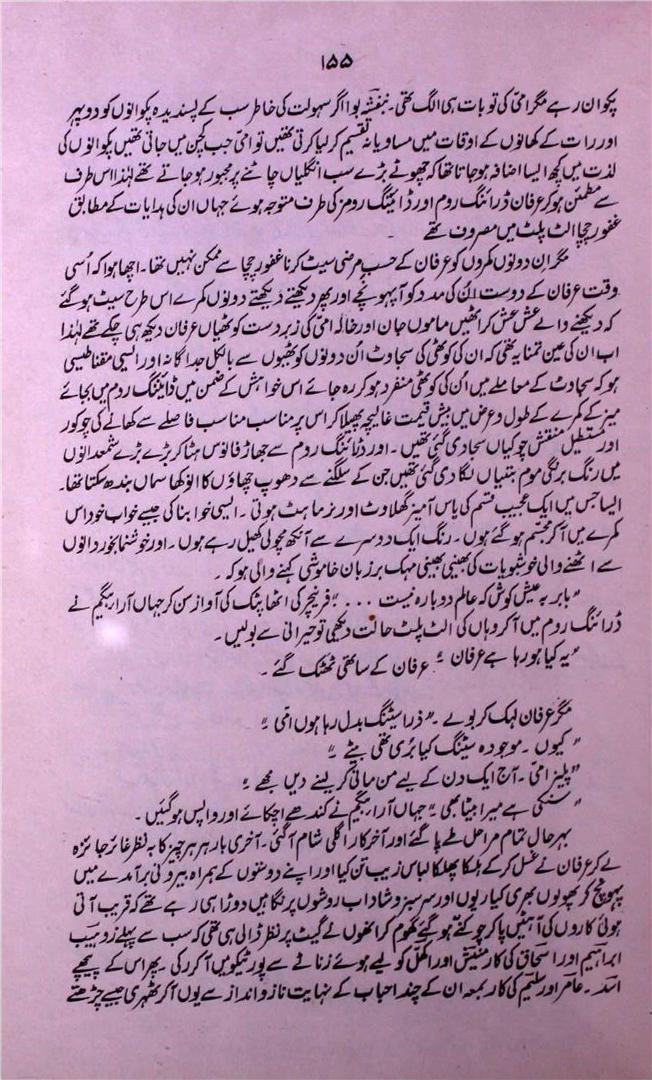 ۱۵۵
پکوان رہے مگر امّی کی تو بات ہی الگ تھی۔ بنفشہ بوا اگر سہولت کی خاطر سب کے پسندیدہ پکوانوں کو دوپہر
اور رات کے کھانوں کے اوقات میں مساویانہ تقسیم کر لیا کرتی تھیں تو امّی جب کچن میں جاتی تھیں پکوانوں کی
لذت میں کچھ ایسا اضافہ ہو جاتا تھا کہ چھوٹے بڑے سب انگلیاں چاٹنے پر مجبور ہو جاتے تھے لہٰذا اس طرف
سے مطمئن ہو کر عرفان ڈرائنگ روم اور ڈائیننگ رومز کی طرف متوجہ ہوئے جہاں ان کی ہدایات کے مطابق
غفور چچا الٹ پلٹ میں مصروف تھے
مگر ان دونوں کمروں کو عرفان کے حسبِ مرضی سیٹ کرنا غفور چچا سے ممکن نہیں تھا۔ اچھا ہوا کہ اُسی
وقت عرفان کے دوست اُن کی مدد کو آ پہونچے اور پھر دیکھتے دیکھتے دونوں کمرے اس طرح سیٹ ہو گئے
کہ دیکھنے والے عش عش کر اٹھیں ماموں جان اور خالہ امّی کی زبردست کوٹھیاں عرفان دیکھ ہی چکے تھے لہٰذا
اب ان کی عین تمنا یہ تھی کہ ان کی کوٹھی کی سجاوٹ اُن دونوں کوٹھیوں سے بالکل جداگانہ اور ایسی مقناطیسی
ہو کہ سجاوٹ کے معاملے میں اُن کی کوٹھی منفرد ہو کر رہ جائے اس خواہش کے ضمن میں ڈائننگ روم میں بجائے
میز کے کمرے کے طول و عرض میں بیش قیمت غالیچہ پھیلا کر اس پر مناسب مناسب فاصلے سے کھانے کی چوکور
اور مستطیل منقش چوکیاں سجا دی گئی تھیں۔ اور ڈرائنگ روم سے جھاڑ فانوس ہٹا کر بڑے بڑے شمعدانوں
میں رنگ برنگی موم بتیاں لگا دی گئی تھیں جن کے سلگنے سے دھوپ چھاؤں کا انوکھا سماں بندھ سکتا تھا۔
ایسا جس میں ایک عجیب قسم کی یاس آمیز گھلاوٹ اور نرماہٹ ہوتی۔ ایسی خوابناکی جیسے خواب خود اس
کمرے میں آ کر مجسّم ہو گئے ہوں۔ رنگ ایک دوسرے سے آنکھ مچولی کھیل رہے ہوں۔ اور خوشنما بخوردانوں
سے اٹھنے والی خوشبویات کی بھینی بھینی مہک بزبان خاموشی کہنے والی ہو کہ۔
"بابر بہ عیش کوش کہ عالم دوبارہ نیست ...." فرنیچر کی اٹھا پٹک کی آواز سن کر جہاں آرا بیگم نے
ڈرائنگ روم میں آ کر وہاں کی الٹ پلٹ حالت دیکھی تو حیرانی سے بولیں۔
"یہ کیا ہو رہا ہے عرفان" عرفان کے ساتھی ٹھٹک گئے۔
مگر عرفان لہک کر بولے۔ "ذرا سیٹنگ بدل رہا ہوں امّی"
"کیوں۔ موجودہ سیٹنگ کیا بُری تھی بیٹے"
"پلیز امّی۔ آج ایک دن کے لیے من مانی کر لینے دیں مجھے"
"سنکی ہے میرا بیٹا بھی" جہاں آرا بیگم نے کندھے اچکائے اور واپس ہو گئیں۔
بہر حال تمام مراحل طے پا گئے اور آخر کار اگلی شام آ گئی۔ آخری بار ہر ہر چیز کا بہ نظر غائر جائزہ
لے کر عرفان نے غسل کر کے ہلکا پھلکا لباس زیب تن کیا اور اپنے دوستوں کے ہمراہ بیرونی برآمدے میں
پہونچ کر پھولوں بھری کیاریوں اور سرسبز و شاداب روشوں پر نگاہیں دوڑا ہی رہے تھے کہ قریب آتی
ہوئی کاروں کی آہٹیں پا کر چوکنے ہو گئے گھوم کر انھوں نے گیٹ پر نظر ڈالی ہی تھی کہ سب سے پہلے زوہیب
ابراہیم اور اسحاق کی کار منیش اور اکمل کو لیے ہوئے زنانے سے پورٹیکو میں آ کر رکی۔ پھر اس کے پیچھے
اسد۔ عامر اور سلیم کی کار بمعہ ان کے چند احباب کے نہایت ناز و انداز سے یوں آ کر ٹھہری جیسے چڑھتے